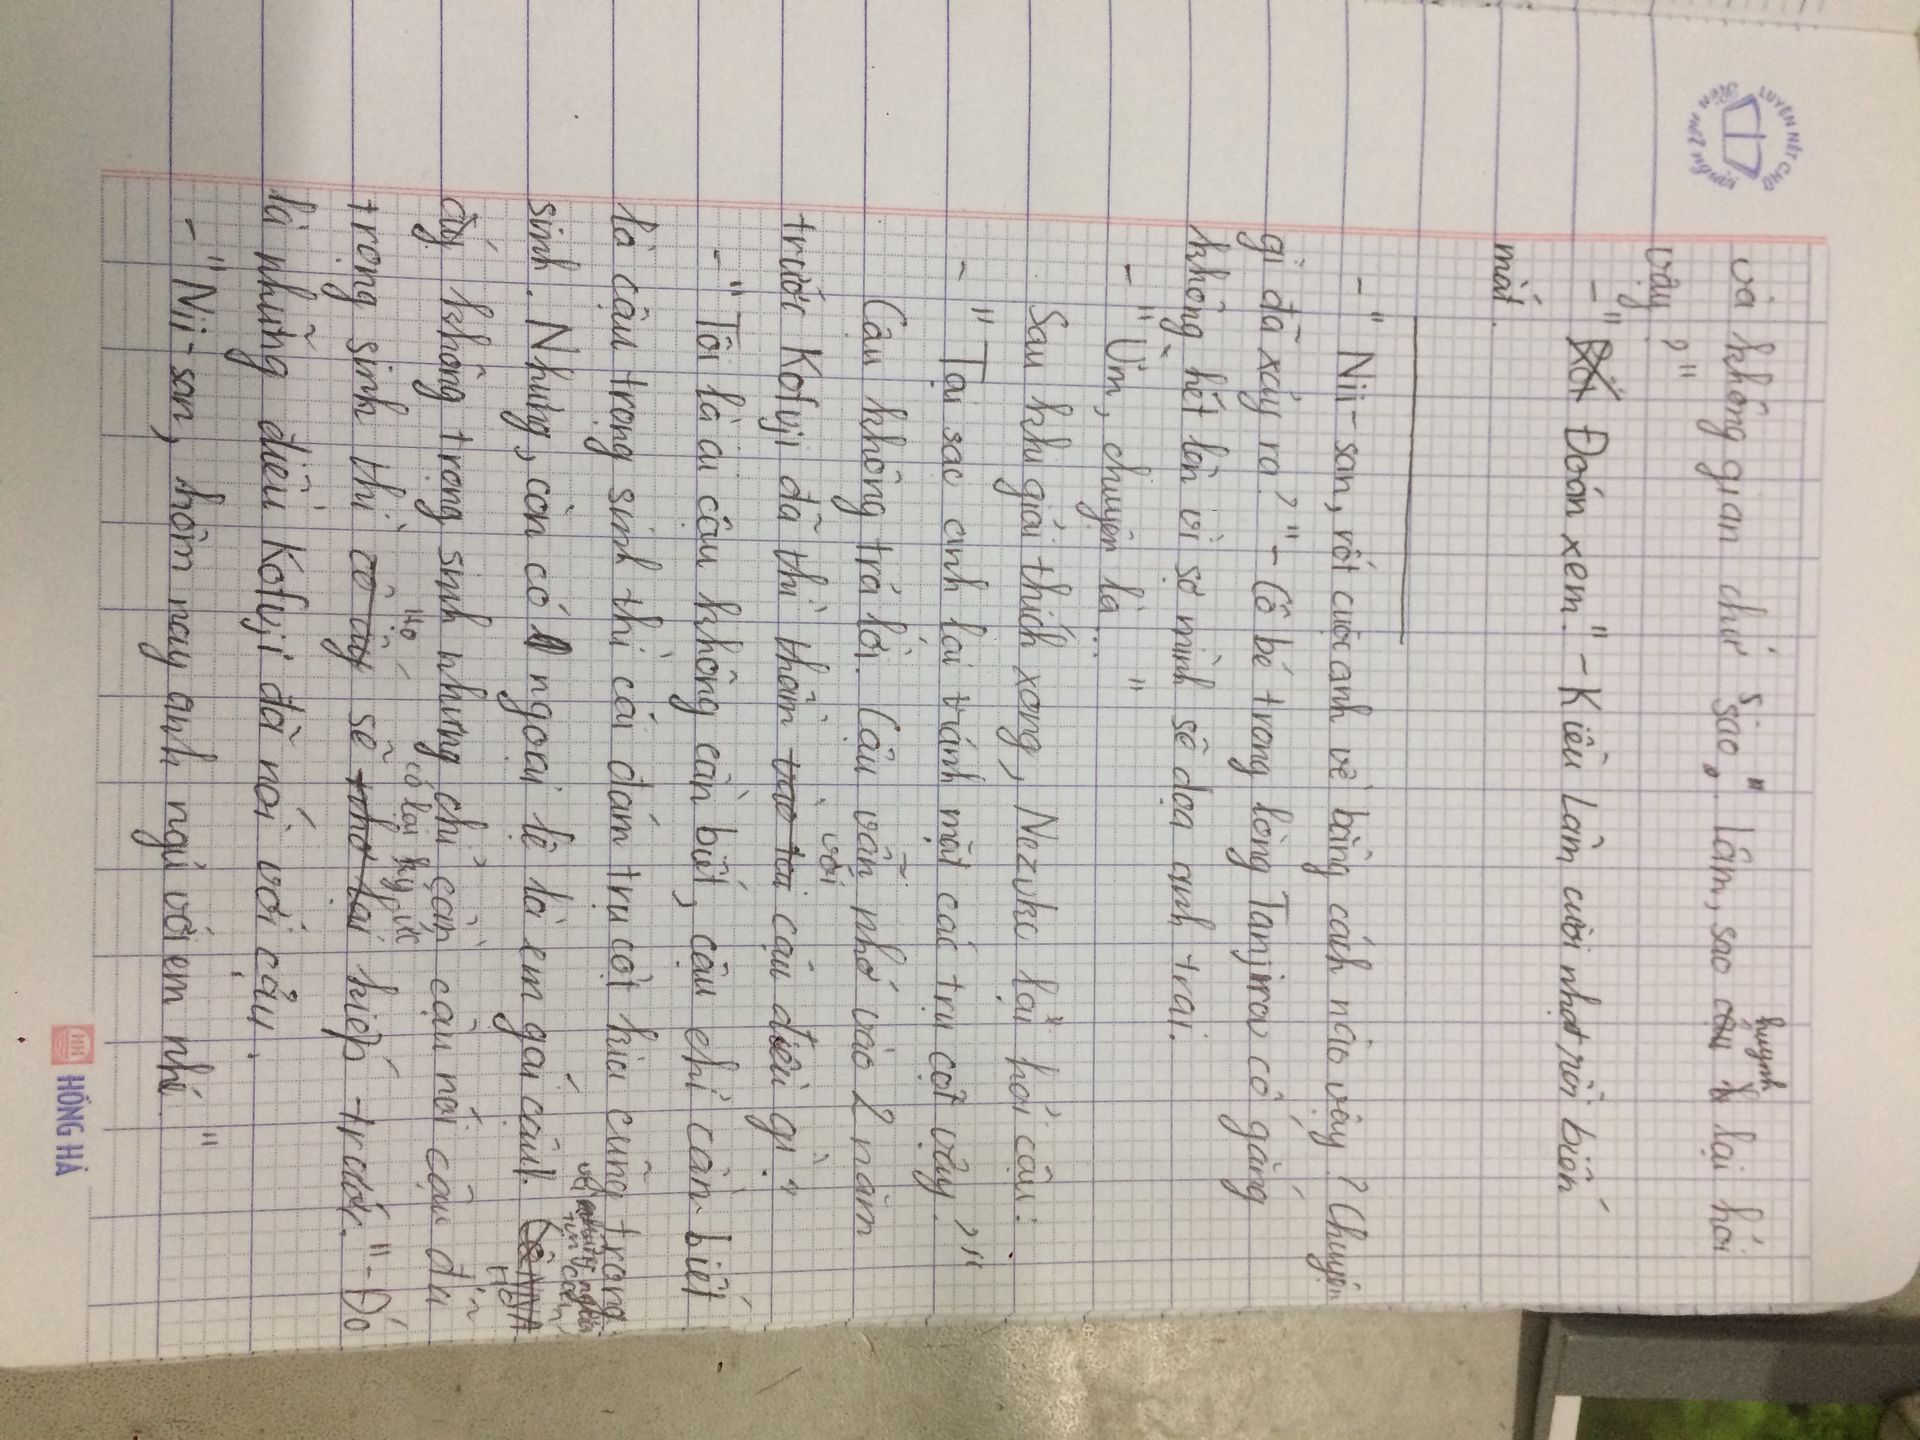 LUYỆN NÉT CHỮ
Rèn nết người
và không gian chứ sao." Lâm, sao huynh lại hỏi
vậy?"
- "Đoán xem." - Kiều Lâm cười nhạt rồi biến
mất.
- "Nii-san, rốt cuộc anh về bằng cách nào vậy? Chuyện
gì đã xảy ra?" - Cô bé trong lòng Tanjirou cố gắng
không hét lên vì sợ mình sẽ dọa anh trai.
- "Ừm, chuyện là... "
Sau khi giải thích xong, Nezuko lại hỏi cậu:
- "Tại sao anh lại tránh mặt các trụ cột vậy?"
Cậu không trả lời. Cậu vẫn nhớ vào 2 năm
trước Kofuji đã thì thầm với cậu điều gì."
- "Tôi là ai cậu không cần biết, cậu chỉ cần biết
là cậu trọng sinh thì cái đám trụ cột kia cũng trọng
sinh. Nhưng, còn có 1 ngoại lệ là em gái cậu.
ấy không trọng sinh nhưng chỉ cần cậu nói cậu đã
trọng sinh thì họ sẽ có lại ký ức kiếp trước." - Đó
là những điều Kofuji đã nói với cậu.
- "Nii-san, hôm nay anh ngủ với em nhé "
HỒNG HÀ